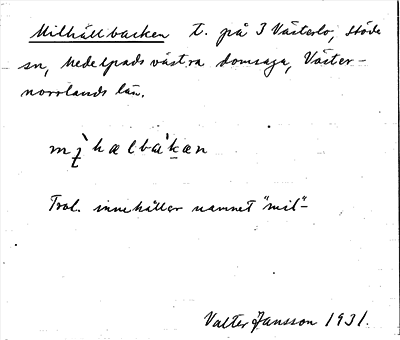 Milhällbacken t. på 3 Västerlo, Stöde
sn, Medelpads västra domsaga, Väster-
norrlands län.
mị̀hælbàkæn
Trol. innehåller namnet "mil"-
Valter Jansson 1931.